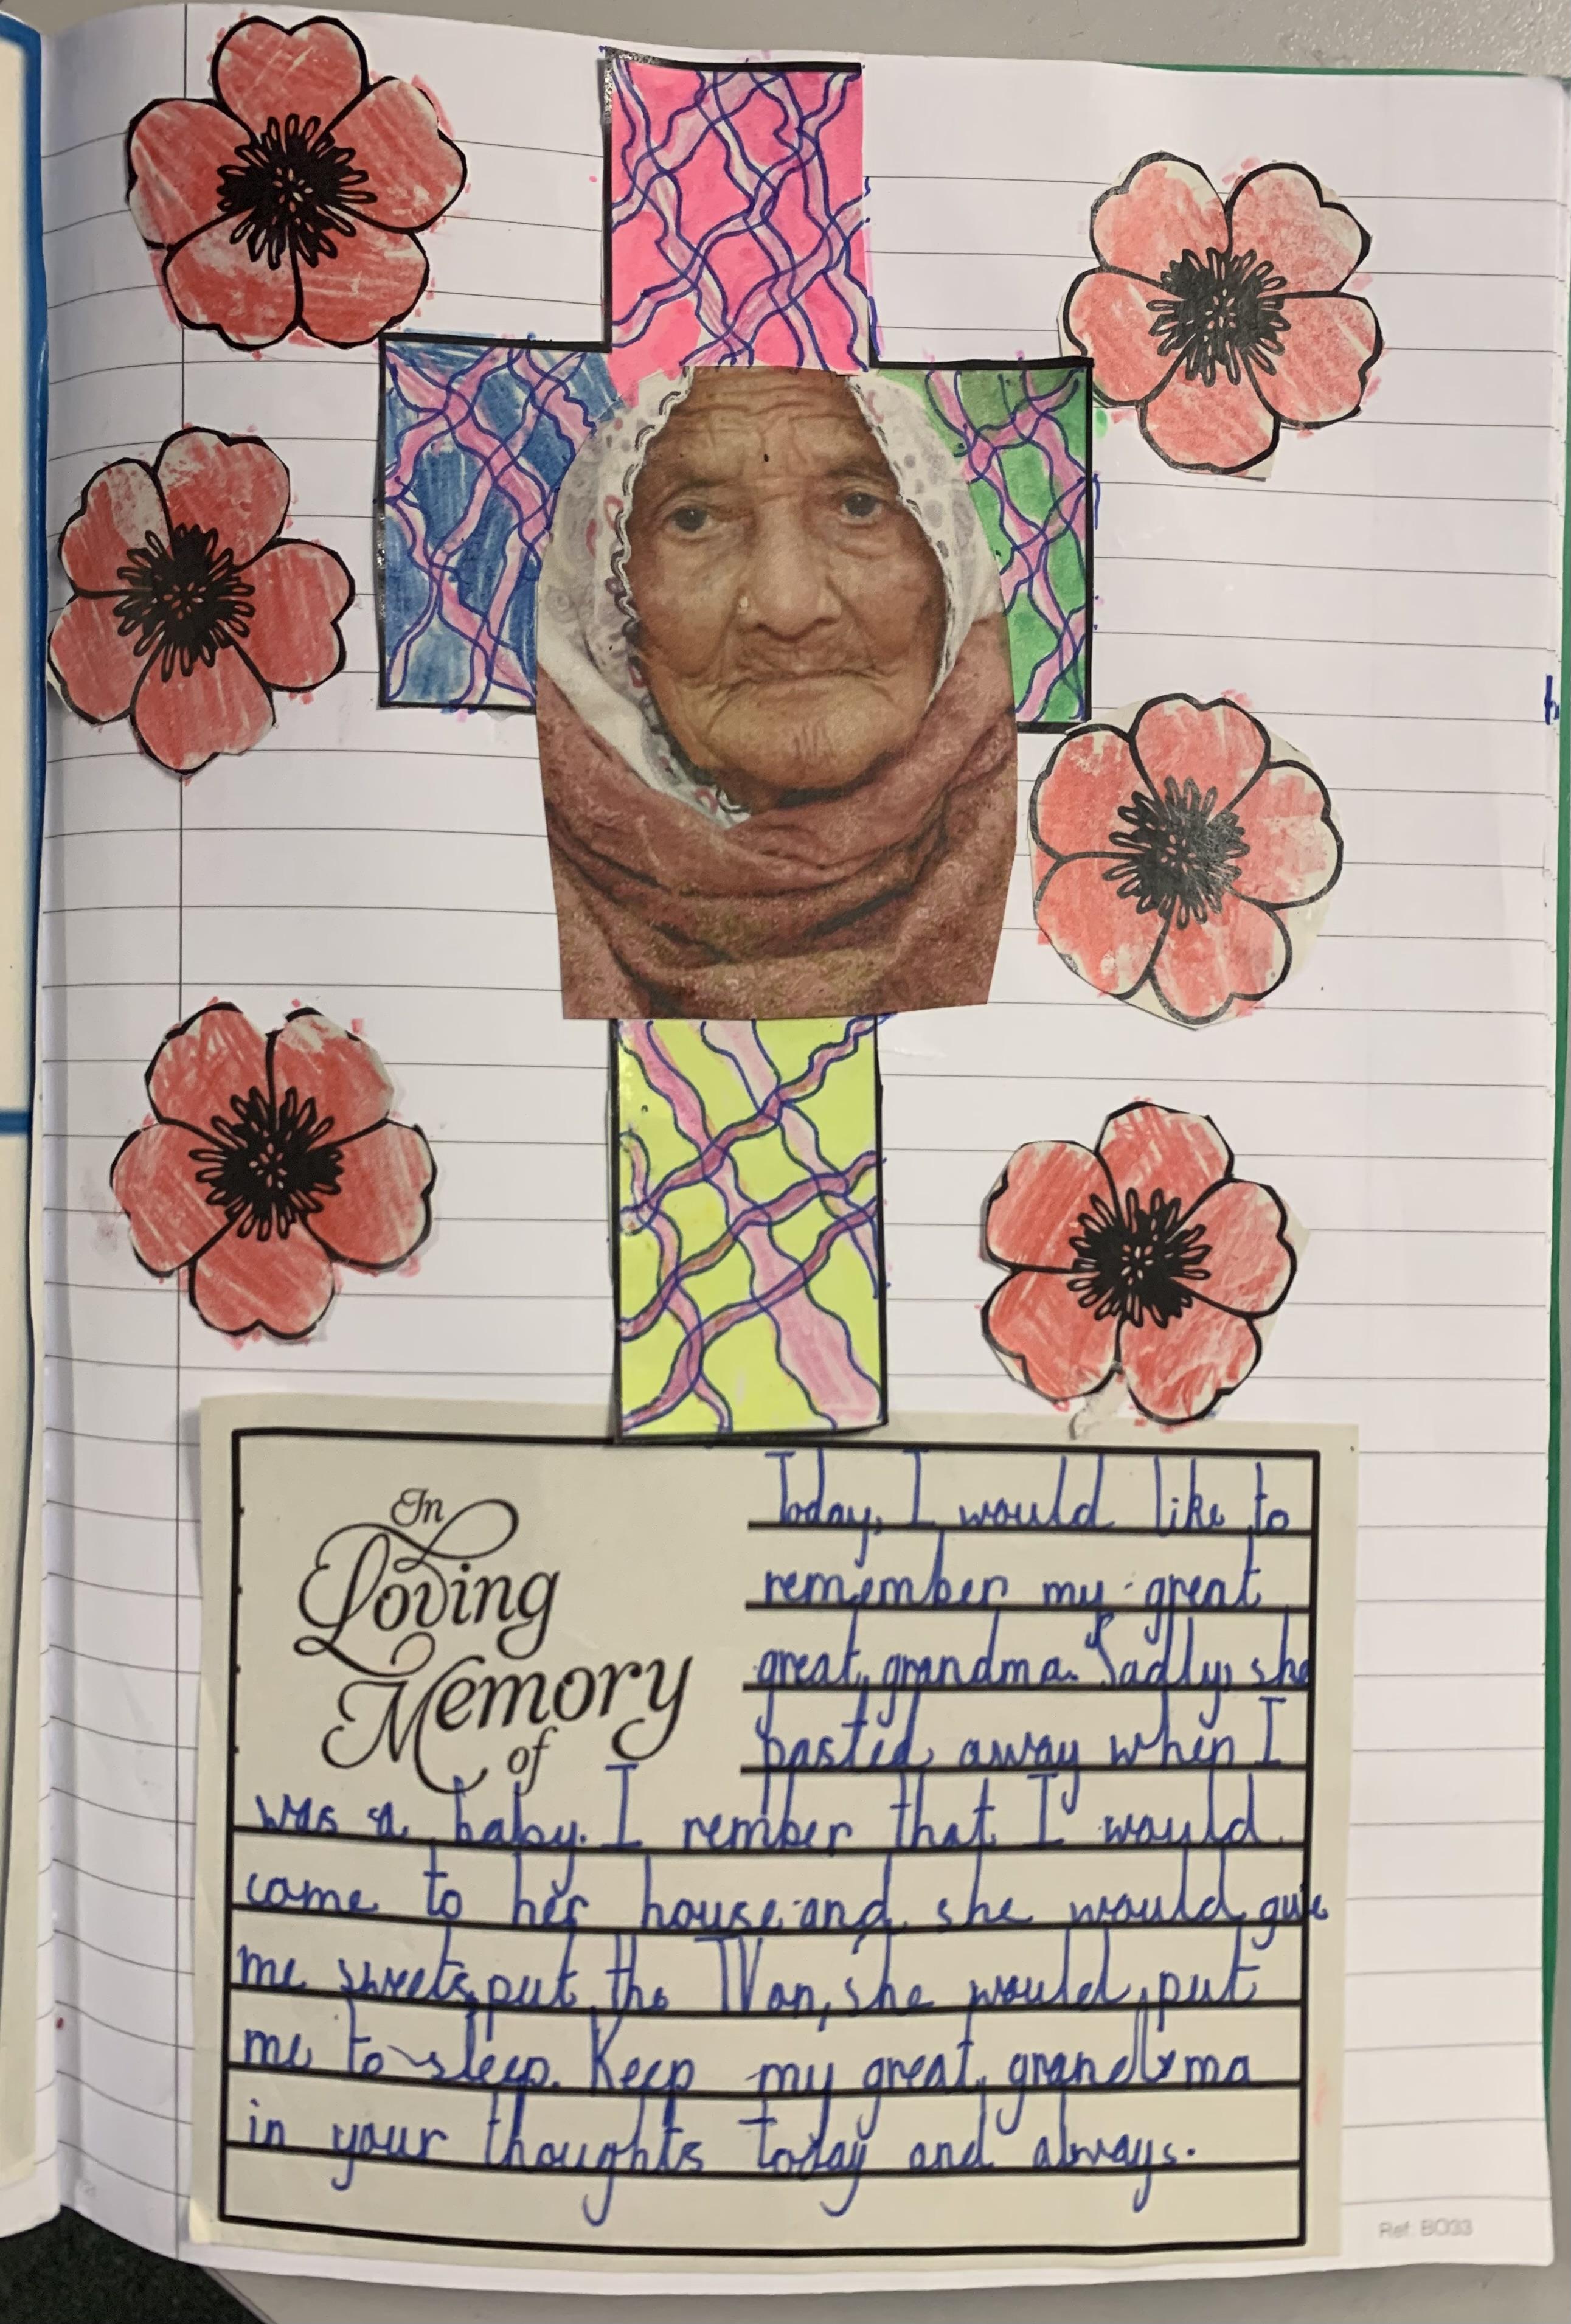 In
Loving
Memory
of
Today, I would like to
remember my great
great grandma. Sadly, she
pasted away when I
was a baby. I rember that I would
come to her house and she would give
me sweets, put the TV on, she would put
me to sleep. Keep my great grandma
in your thoughts today and always.
Ref: BO33